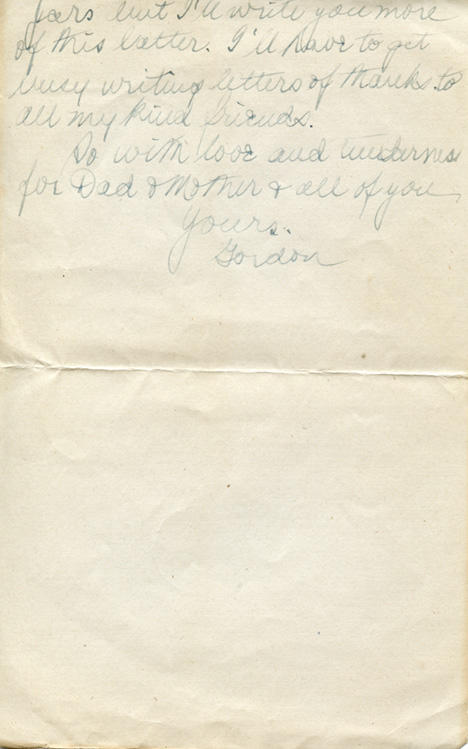 jars but I'll write you more
of this latter. I'll have to get
busy writing letters of thanks to
all my kind friends.
So with love and tenderness
for Dad & Mother & all of you
Yours.
Gordon